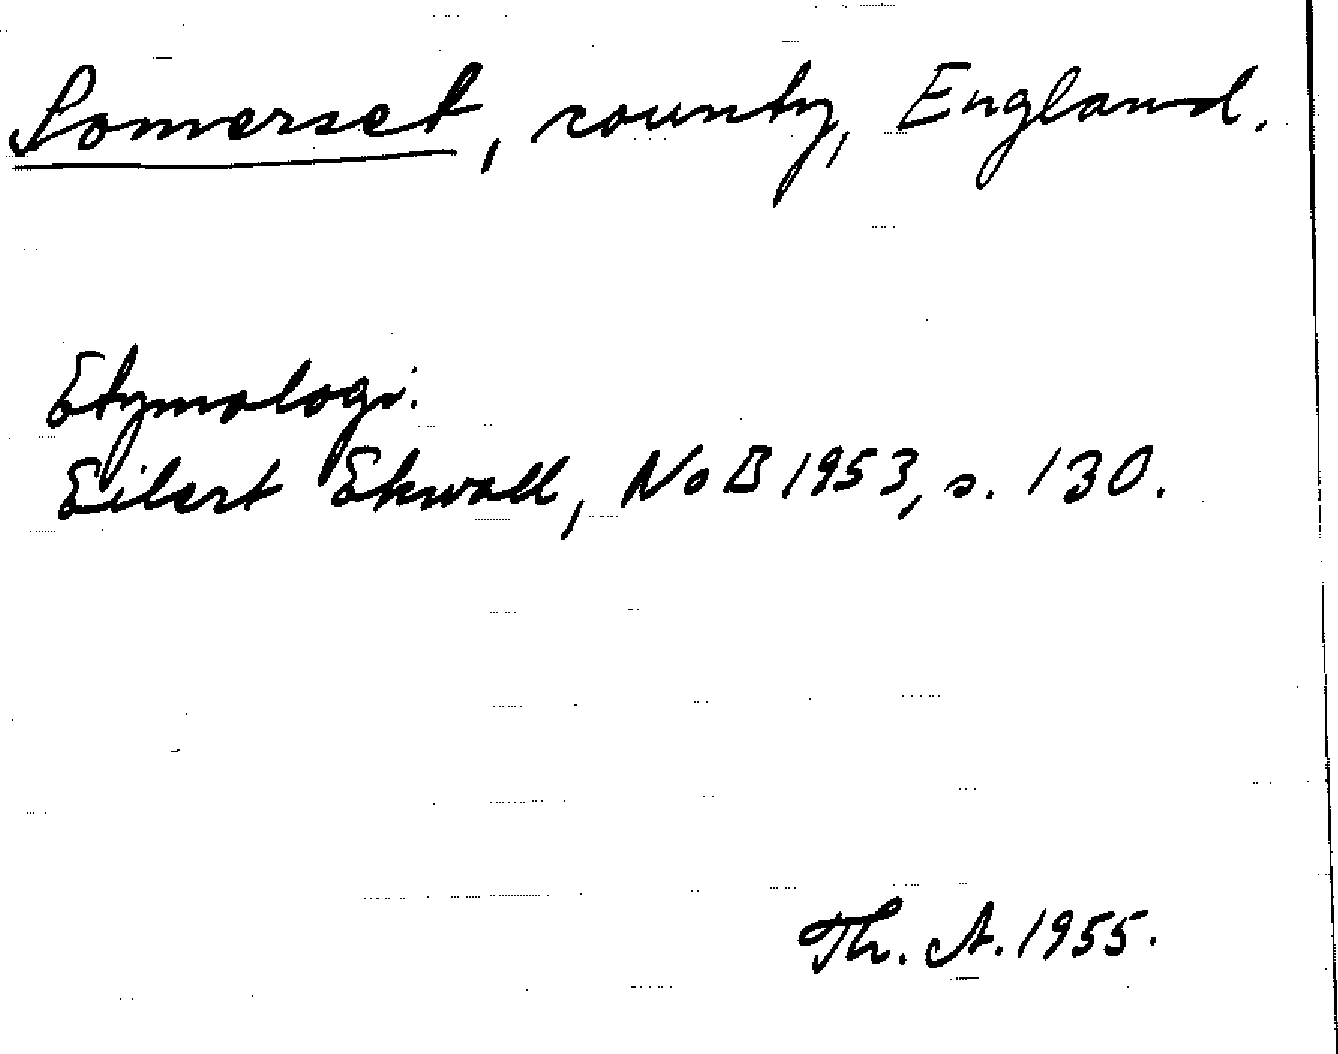 Somerset, county, England.
Etymologi:
Eilert Ekwall, NoB 1953, s. 130.
Th. A. 1955.